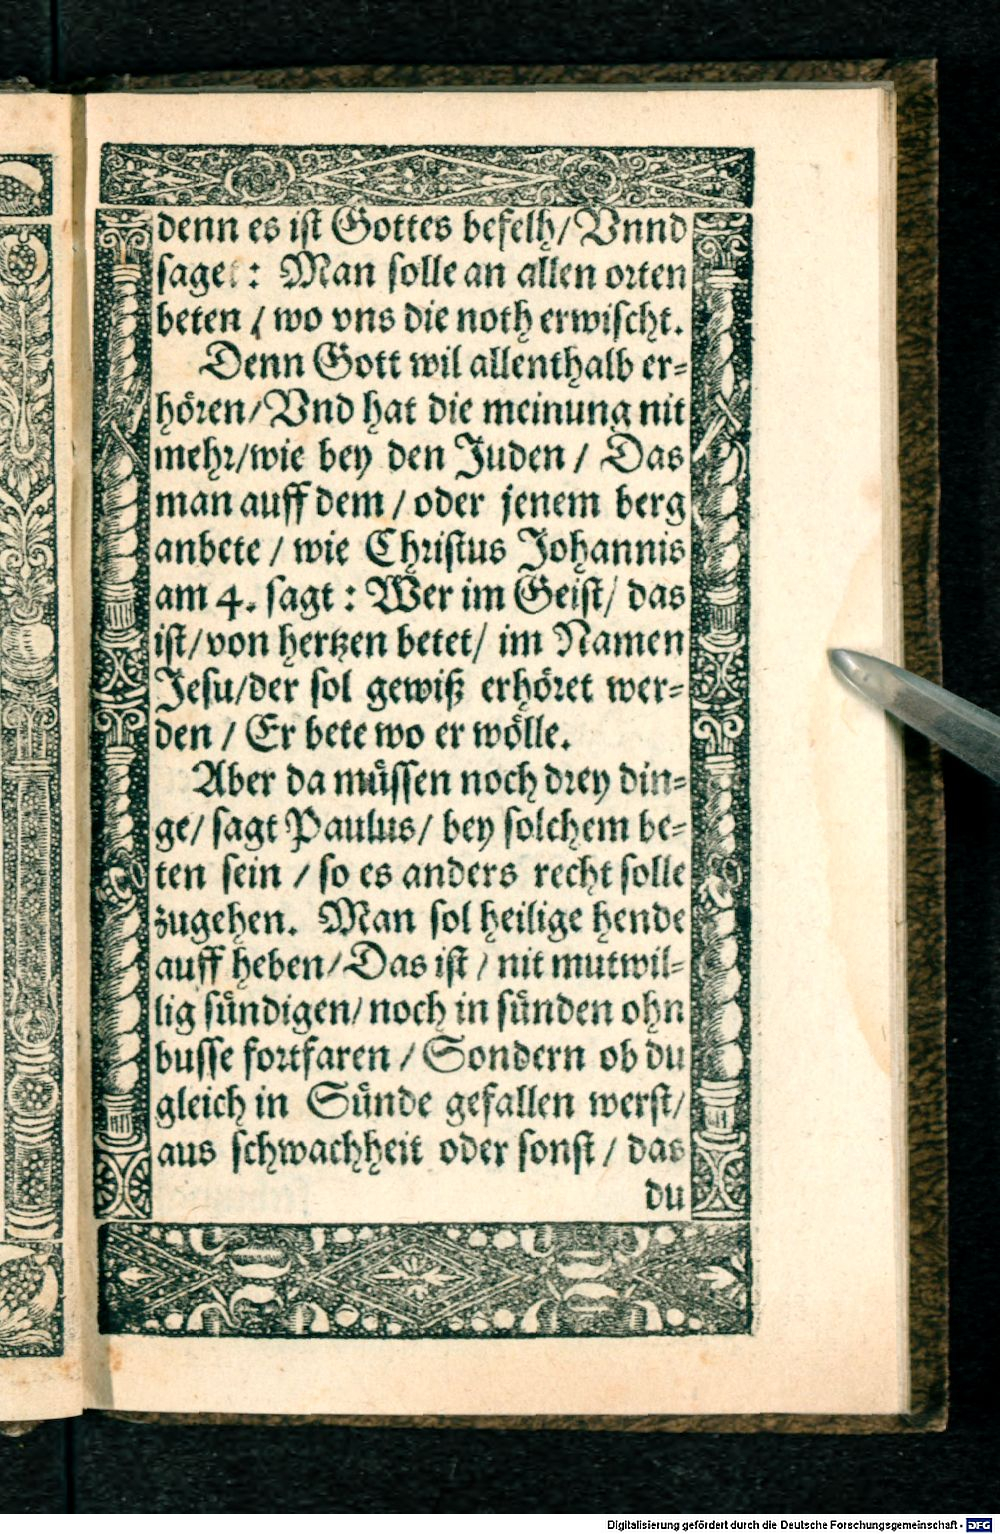 denn es ist Gottes befelh/ Vnnd
saget: Man solle an allen orten
beten / wo vns die noth erwischt.
Denn Gott wil allenthalb er-
hören/ Vnd hat die meinung nit
mehr/wie bey den Juden / Das
man auff dem / oder jenem berg
anbete / wie Christus Johannis
am 4. sagt: Wer im Geist/ das
ist/von hertzen betet/ im Namen
Jesu/der sol gewiß erhöret wer-
den / Er bete wo er wölle.
Aber da müssen noch drey din-
ge/ sagt Paulus/ bey solchem be-
ten sein / so es anders recht solle
zugehen. Man sol heilige hende
auff heben/ Das ist / nit mutwil-
lig sündigen/ noch in sünden ohn
busse fortfaren / Sondern ob du
gleich in Sünde gefallen werst/
aus schwachheit oder sonst / das
du
Digitalisierung gefördert durch die Deutsche Forschungsgemeinschaft - DFG